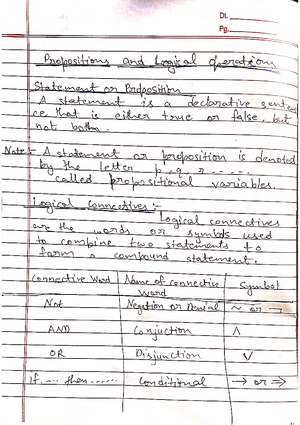 Dt.
Pg.
Propositions and Logical operations
Statement or Proposition
A statement is a declarative senten
ce that is either true or false, but
not both.
Note:- A statement or proposition is denoted
by the letter p, q, r ......
called propositional variables.
Logical Connectives :-
Logical connectives
are the words or symbols used
to combine two statements to
form a compound statement.
Connective Word | Name of connective word | Symbol
Not | Negation or Denial | ~ or ¬
AND | Conjuction | ∧
OR | Disjunction | ∨
if .... then ...... | Conditional | → or ⇒